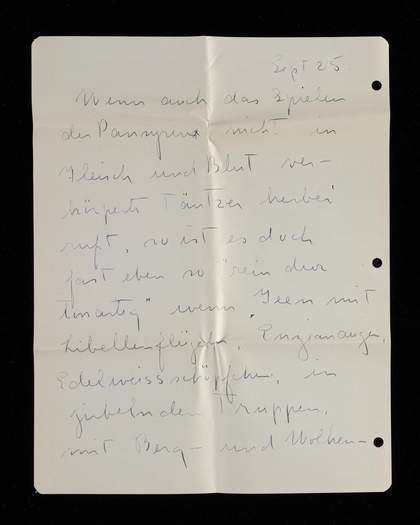 Sept 25
Wenn auch das Spielen
der Pansyrinx, nicht in
Fleisch und Blut ver-
körperte Täntzer herbei
ruft, so ist es doch
fast eben so "rein
wenn Feen mit
Libellenflügeln, Enzianaugen,
Edelweissschöpfchen, in
jubelnden Truppen,
mit Berg- und Wolken-